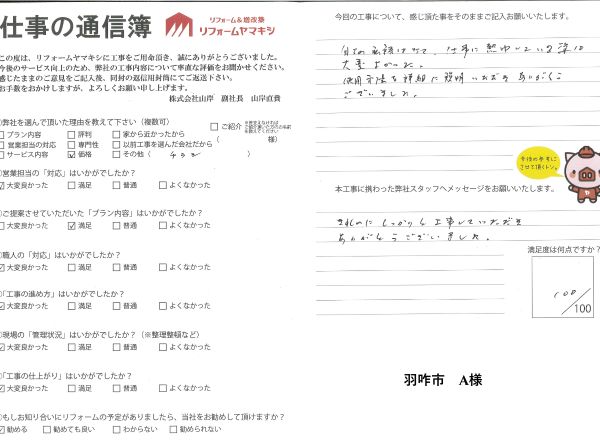 仕事の通信簿
リフォーム&増改築
リフォームヤマキシ
この度は、リフォームヤマキシに工事をご用命頂き、誠にありがとうございました。
今後のサービス向上のため、弊社の工事内容について率直な評価をお聞かせください。
感じたままのご意見をご記入後、同封の返信用封筒にてご返送下さい。
お手数をおかけしますが、よろしくお願い申し上げます。
株式会社山岸 副社長 山岸直貴
弊社を選んで頂いた理由を教えて下さい(複数可)
プラン内容 評判 家から近かったから
営業担当の対応 専門性 以前工事を選んだ会社だから
サービス内容 価格 その他(チラシ
ご紹介
様)
営業担当の「対応」はいかがでしたか?
大変良かった 満足 普通 よくなかった
ご提案させていただいた「プラン内容」はいかがでしたか?
大変良かった 満足 普通 よくなかった
職人の「対応」はいかがでしたか?
大変良かった 満足 普通 よくなかった
「工事の進め方」はいかがでしたか?
大変良かった 満足 普通 よくなかった
現場の「管理状況」はいかがでしたか?(※整理整頓など)
大変良かった 満足 普通 よくなかった
「工事の仕上がり」はいかがでしたか?
大変良かった 満足 普通 よくなかった
もしお知り合いにリフォームの予定がありましたら、当社をお勧めして頂けますか?
勧める 勧めても良い わからない 勧められない
今回の工事について、感じ頂た事をそのままご記入お願いいたします。
仕事に熱中している姿は
大変よかった。
使用方法を詳細に説明いただきありがとう
ございました。
今後の参考に
させて頂くトン。
本工事に携わった弊社スタッフへメッセージをお願いいたします。
きれいにしっかりと工事していただき
ありがとうございました。
満足度は何点ですか?
100
/100
羽咋市 A様